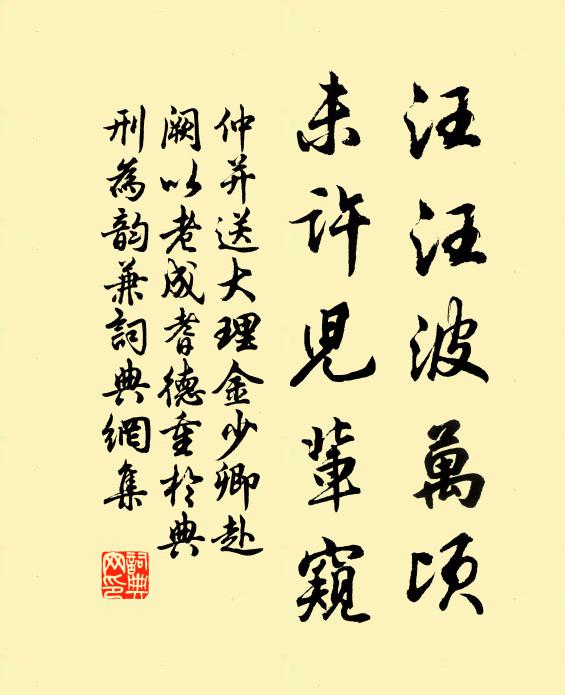 汪汪波萬頃
未許兒輩窺
仲并送大理金少卿赴
闕以老成耆德重於典
刑為韵兼詞典網集
詞典
网印